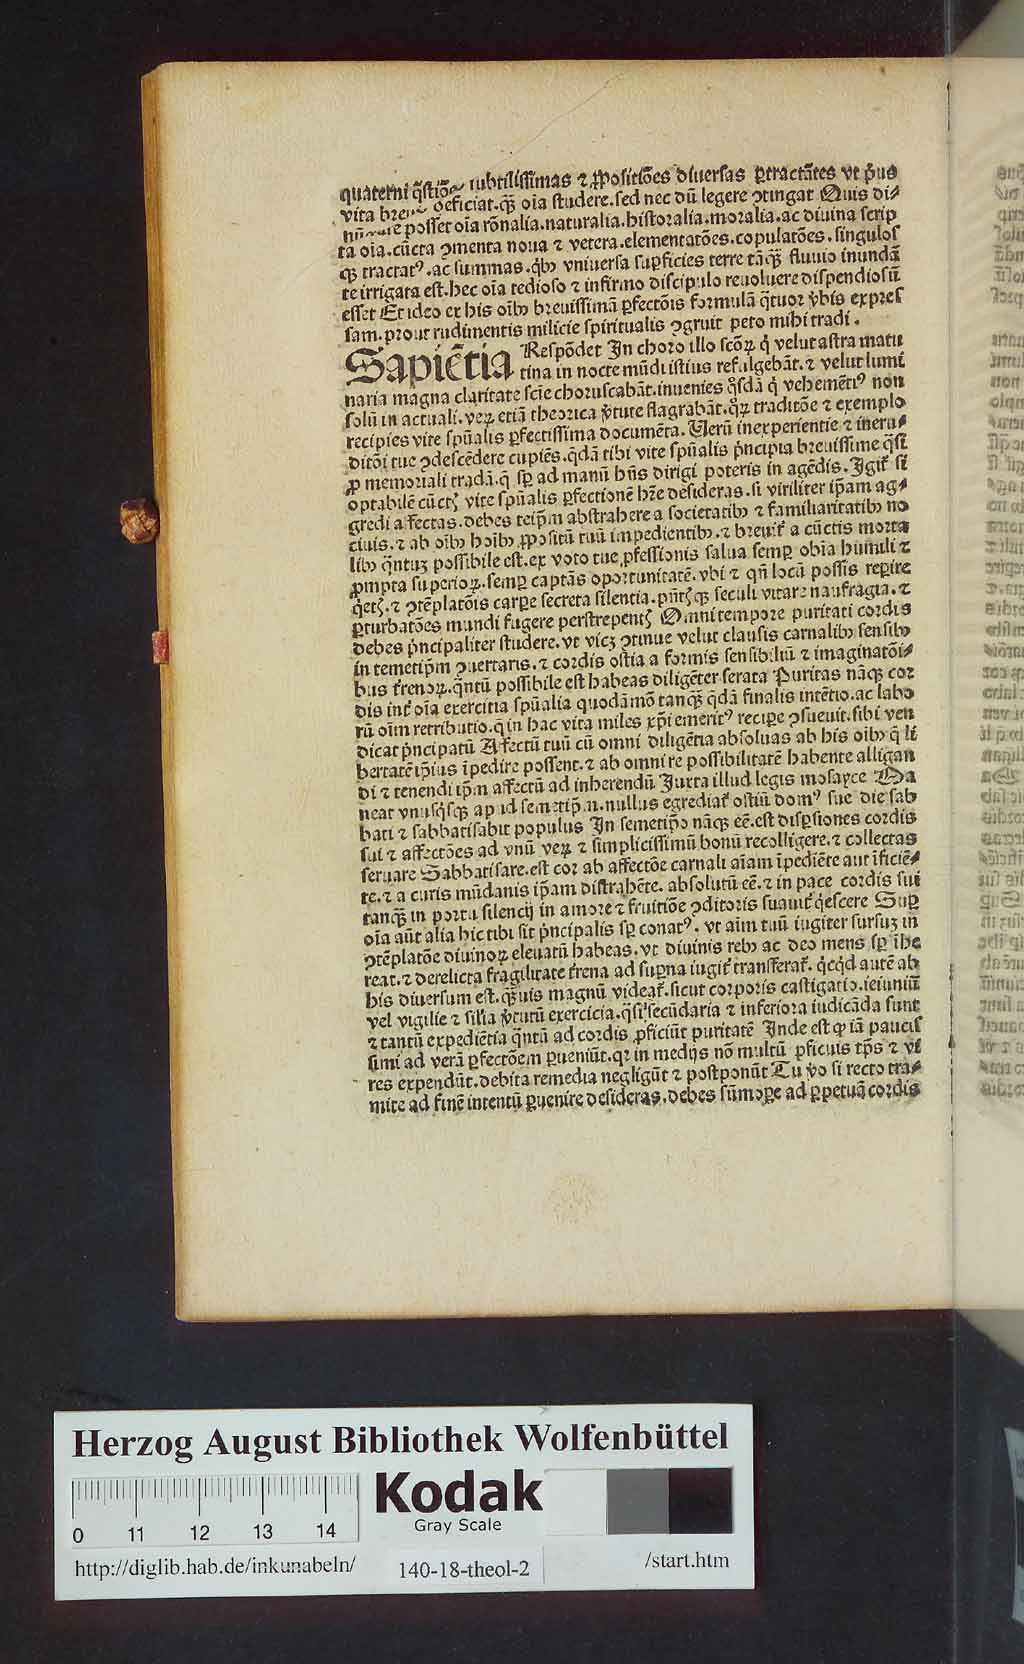 quaterni q̃stiões subtilissimas ⁊ ꝓpositiões diuersas ꝑtractãtes vt pⁱus
vita breuis deficiat. qꝫ̃ oĩa studere. sed nec dũ legere ↄtingat Quis di⸗
posset oĩa rõnalia. naturalia. historalia. moralia. ac diuina scrip
ta oĩa. cũcta ↄmenta noua ⁊ vetera. elementatões. copulatões. singulos
qꝫ tractatꝰ. ac summas. qⁱbꝫ vniuersa suꝑficies terre tãqꝫ̃ fluuio inundã
te irrigata est. hec oĩa tedioso ⁊ infirmo discipulo reuoluere dispendiosũ
esset Et ideo ex his oĩbꝫ breuissimã ꝑfectõis formulã q̃tuor v̓bis expres
sam. prout rudimentis milicie spiritualis ↄgruit peto mihi tradi.
Sapiẽtia Respõdet In choro illo scõꝝ qⁱ velut astra matu
tina in nocte mũdi istius refulgebãt. ⁊ velut lumi
naria magna claritate scĩe choruscabãt. inuenies qͦsdã qⁱ vehemẽtiꝰ non
solũ in actuali. veꝝ etiã theorica v̓tute flagrabãt. qͦꝝ traditõe ⁊ exemplo
recipies vite spũalis ꝑfectissima documẽta. Uerũ inexperientie ⁊ ineru⸗
ditõi tue ↄdescẽdere cupiẽs. q̃dã tibi vite spũalis pⁱncipia breuissime q̃si
ꝓ memoriali tradã. q̃ sꝑ ad manũ hñs dirigi poteris in agẽdis. Igitᷣ si
optabilẽ cũctꝭ vite spũalis ꝑfectionẽ hr̃e desideras. si viriliter ip̃am ag⸗
gredi affectas. debes teip̃m abstrahere a societatibꝫ ⁊ familiaritatibꝫ no
ciuis. ⁊ ab oĩbꝫ hoĩbꝫ ꝓpositũ tuũ impedientibꝫ. ⁊ breuitᷣ a cũctis morta
libꝫ q̃ntuꝫ possibile est. ex voto tue ꝓfessionis salua semꝑ obĩa humili ⁊
ꝓmpta suꝑioꝝ. semꝑ captãs oportunitatẽ. vbi ⁊ qñ locũ possis reꝑire
qⁱetꝭ. ⁊ ↄtẽplatõis carꝑe secreta silentia. pñtꝭqꝫ seculi vitare naufragia. ⁊
ꝑturbatões mundi fugere perstrepentꝭ Omni tempore puritati cordis
debes pⁱncipaliter studere. vt vicꝫ ↄtinue velut clausis carnalibꝫ sensibꝫ
in temetip̃m ↄuertaris. ⁊ cordis ostia a formis sensibiliũ ⁊ imaginatõi⸗
bus tr̃enoꝝ. q̃ntũ possibile est habeas diligẽter serata Puritas nãqꝫ cor
dis intᷣ oĩa exercitia spũalia quodãmõ tanqꝫ̃ q̃dã finalis intẽtio. ac labo
rũ oĩm retributio. q̃ in hac vita miles xp̃i emeritꝰ reciꝑe ↄsueuit. sibi ven
dicat pⁱncipatũ Affectũ tuũ cũ omni diligẽtia absoluas ab his oĩbꝫ q̃ li
bertatẽ ip̃ius ĩpedire possent. ⁊ ab omni re possibilitatẽ habente alligan
di ⁊ tenendi ip̃m affectũ ad inherendũ Juxta illud legis mosayce Ma
neat vnusqⁱsqꝫ apud semetip̃m. nullus egrediatᷣ ostiũ domꝰ sue die sab
bati ⁊ sabbatisabit populus In semetip̃o nãqꝫ eẽ. est disꝑsiones cordis
sui ⁊ affectões ad vnũ veꝝ ⁊ simplicissimũ bonũ recolligere. ⁊ collectas
seruare Sabbatisare. est cor ab affectõe carnali aĩam ĩpediẽte aut ĩficiẽ⸗
te. ⁊ a curis mũdanis ip̃am distrahẽte. absolutũ eẽ. ⁊ in pace cordis sui
tanqꝫ̃ in portu silencij in amore ⁊ fruitiõe ↄditoris suauitᷣ qⁱescere Suꝑ
oĩa aũt alia hic tibi sit pⁱncipalis sꝑ conatꝰ. vt aĩm tuũ iugiter sursuꝫ in
ↄtẽplatõe diuinoꝝ eleuatũ habeas. vt diuinis rebꝫ ac deo mens sꝑ ĩhe
reat. ⁊ derelicta fragilitate tr̃ena ad suꝑna iugitᷣ transferatᷣ. qⁱcqⁱd autẽ ab
his diuersum est. qꝫ̃uis magnũ videatᷣ. sicut corporis castigatio. ieiuniũ
vel vigilie ⁊ silĩa v̓tutũ exercicia. q̃si secũdaria ⁊ inferiora iudicãda sunt
⁊ tantũ expediẽtia q̃ntũ ad cordis ꝓficiũt puritatẽ Inde est ꝙ iã paucis
simi ad verã ꝑfectõem ꝑueniũt. qꝛ in medijs nõ multũ ꝓficuis tp̃s ⁊ vi
res expendũt. debita remedia negligũt ⁊ postponũt Tu v̓o si recto tra⸗
mite ad finẽ intentũ ꝑuenire desideras. debes sũmoꝑe ad ꝑpetuã cordis
Herzog August Bibliothek Wolfenbüttel
Kodak
Gray Scale
0 11 12 13 14
http://diglib.hab.de/inkunabeln/ 140-18-theol-2 /start.htm